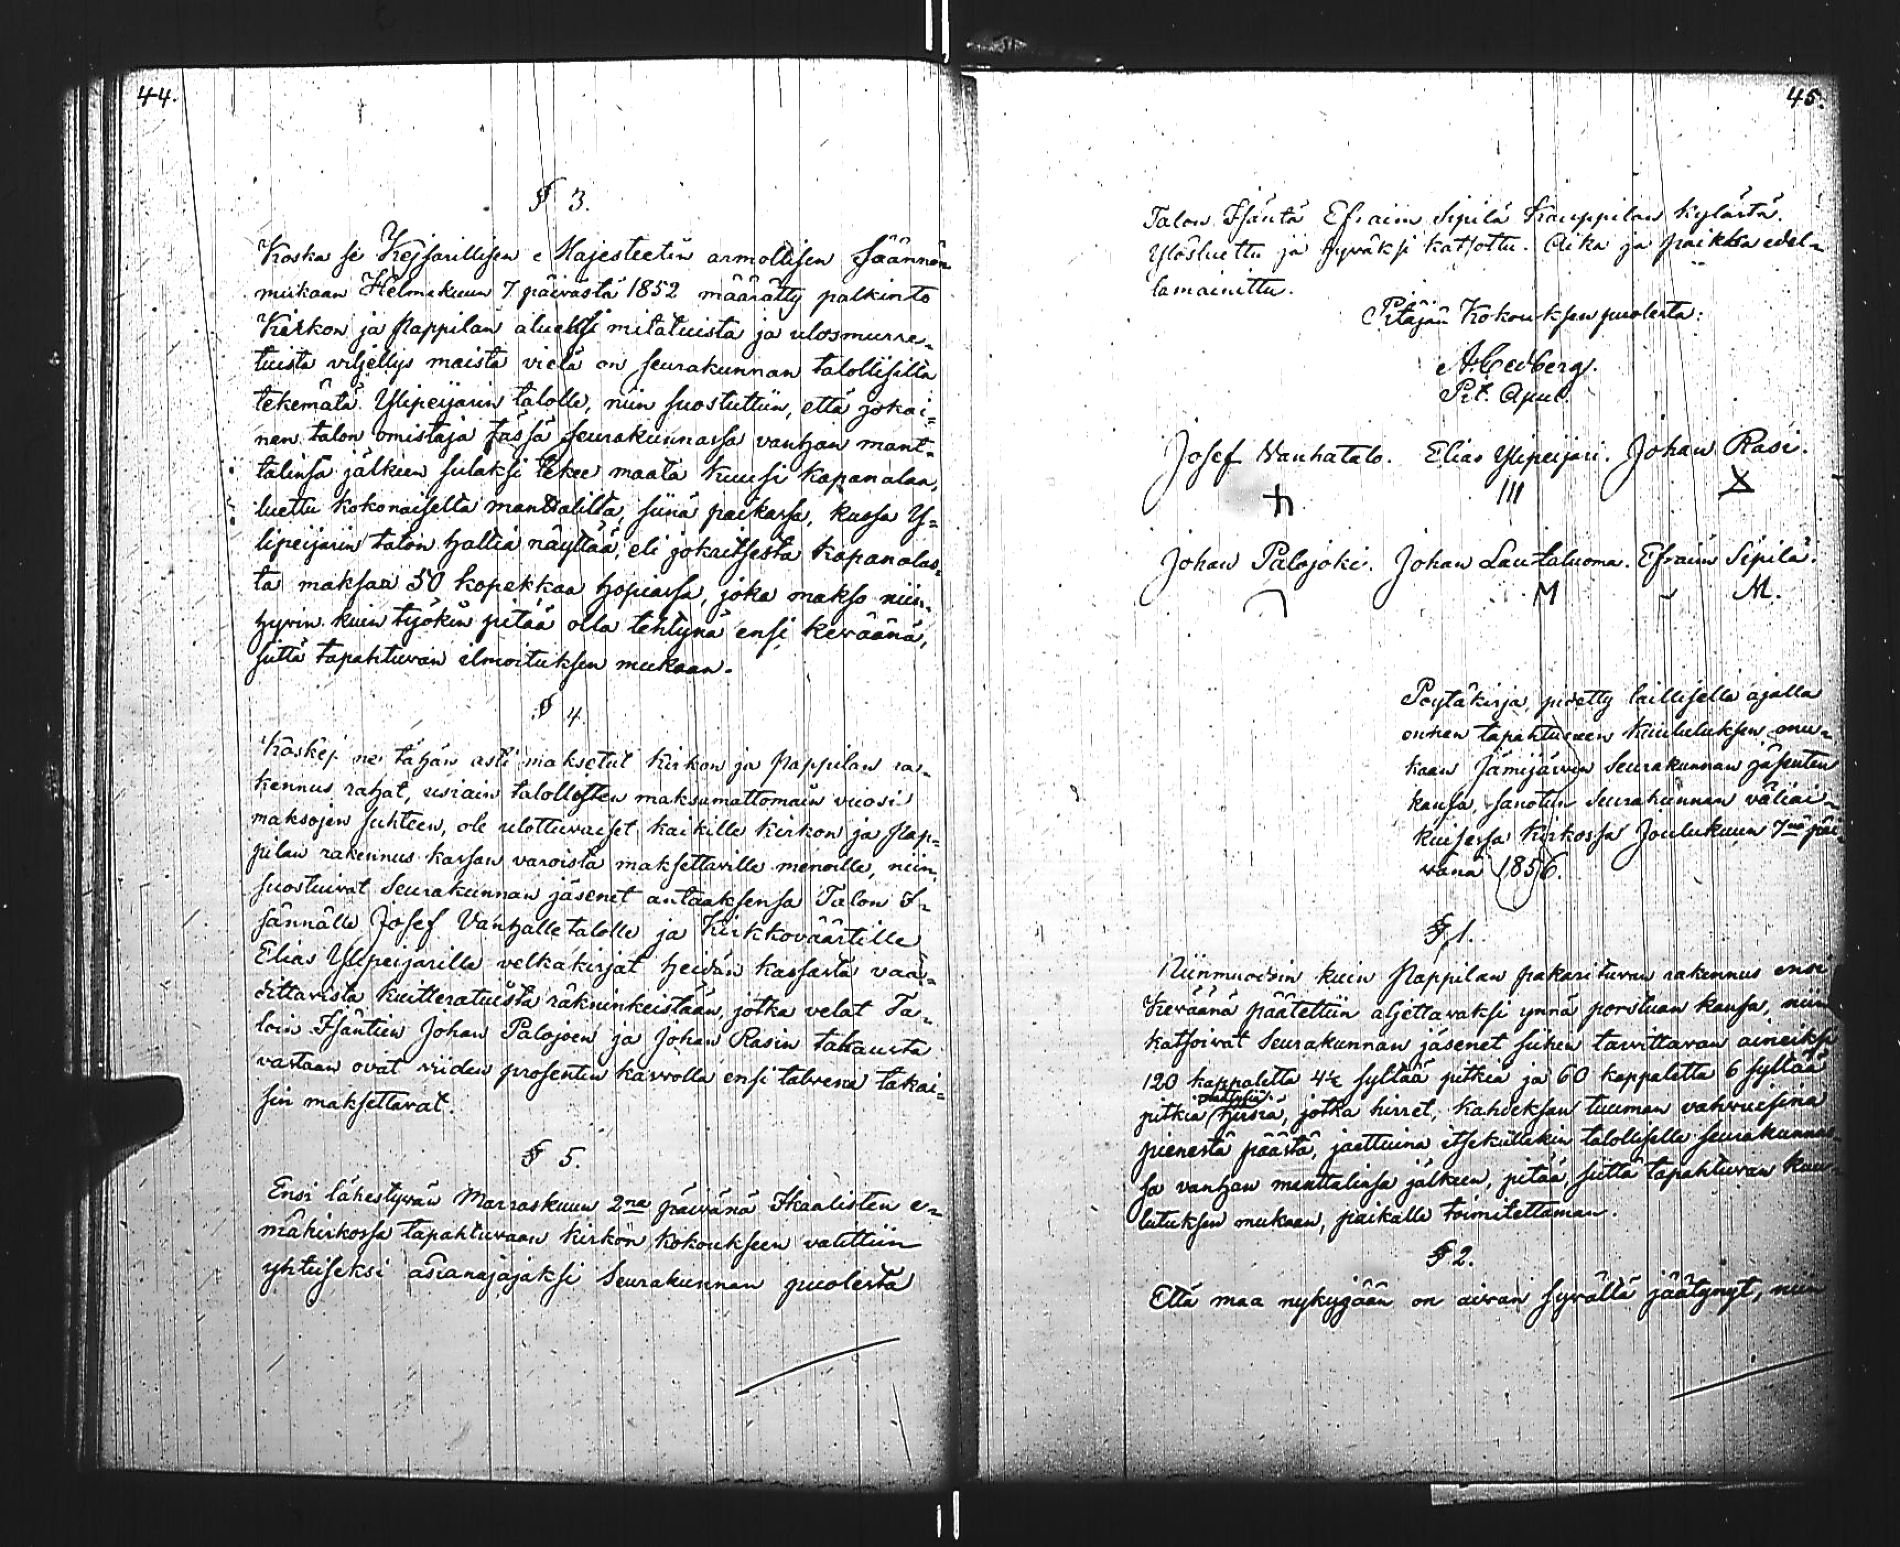 44.
§ 3.
Koska se Kejsarillisen Majesteetin armollisen Säännön
mukaan Helmekuun 7 päivästä 1852 määrätty palkinto
Kirkon ja Pappilan alueksi mitatuista ja ulosmurre-
tuista viljellys maista vielä on seurakunnan talollisilta
tekemätä Ylipeijarin talolle, niin suostuttiin, että jokai-
nen talon omistaja tässä seurakunnassa vanhan mant-
talinsa jälkeen sulaksi tekee maata kuusi kapanalaa,
luettu kokonaiselta manttalilta, siinä paikassa, kussa Y-
lipeijarin talon haltia näyttää, eli jokaitsesta kapanalas-
ta maksaa 50 kopekkaa hopiassa, joka makso niin-
hyvin kuin työkin pitää olla tehtynä ensi keväänä,
siittä tapahtuvan ilmoituksen mukaan.
§ 4.
Koskej ne tähän asti maksetut kirkon ja pappilan ra-
kennus rahat, usiain talollisten maksamattomain vuosi
maksojen suhteen, ole ulottuvaiset kaikille kirkon ja pap-
pilan rakennus kassan varoista maksettaville menoille, niin
suostuivat Seurakunnan jäsenet antaaksensa Talon I-
sännälle Josef Vanhalletalolle ja Kirkkoväärtille
Elias Ylipeijarille velkakirjat heidän kassasta vaa-
dittavista kuitteratuista räkninkeistään, jotka velat Ta-
loin Isäntien Johan Palojoen ja Johan Rasin takausta
vastaan ovat viiden prosentin kasvolla ensi talvena takai-
sin maksettavat.
§ 5.
Ensi lähestyvän Marraskuun 2na päivänä Ikaalisten e-
mäkirkossa tapahtuvaan kirkon kokoukseen valittiin
yhteiseksi asianajajaksi Seurakunnan puolesta
45.
Talon Isäntä Efraim Sipilä Kauppilan kylästä.
Ylösluettu ja hyväksi katsottu. Aika ja paikka edel-
lämainittu.
Pitäjän Kokouksen puolesta:
A. Cedberg.
Pit. Apul.
Josef Wanhatalo. Elias Ylipeijari. Johan Rasi.
III X
Johan Palojoki. Johan Lautaluoma. Efraim Sipilä.
M M.
Pöytäkirja, pidetty laillisella ajalla
ennen tapahtuneen kuulutuksen mu-
kaan Jämijärven Seurakunnan jäsenten
kansa, sanotun Seurakunnan väliai-
kuisessa kirkossa Joulukuun 7nä päi-
vänä 1856.
§ 1.
Niinmuodoin kuin Pappilan pakarituvan rakennus ensi
keväänä päätettiin aljettavaksi ynnä porstuan kansa, niin
katsoivat Seurakunnan jäsenet siihen tarvittavan aineiksi
120 kappaletta 4½ syltää pitkiä ja 60 kappaletta 6 syltää
pitkiä hirsiä, jotka hirret, kahdeksan tuuman vahvuisina
pienestä päästä, jaettuina itsekullekin talolliselle seurakunnas-
sa vanhan manttalinsa jälkeen, pitää, siittä tapahtuvan kuu-
lutuksen mukaan, paikalle toimitettaman.
§ 2.
Että maa nykyjään on aivan syvältä jäätynyt, niin